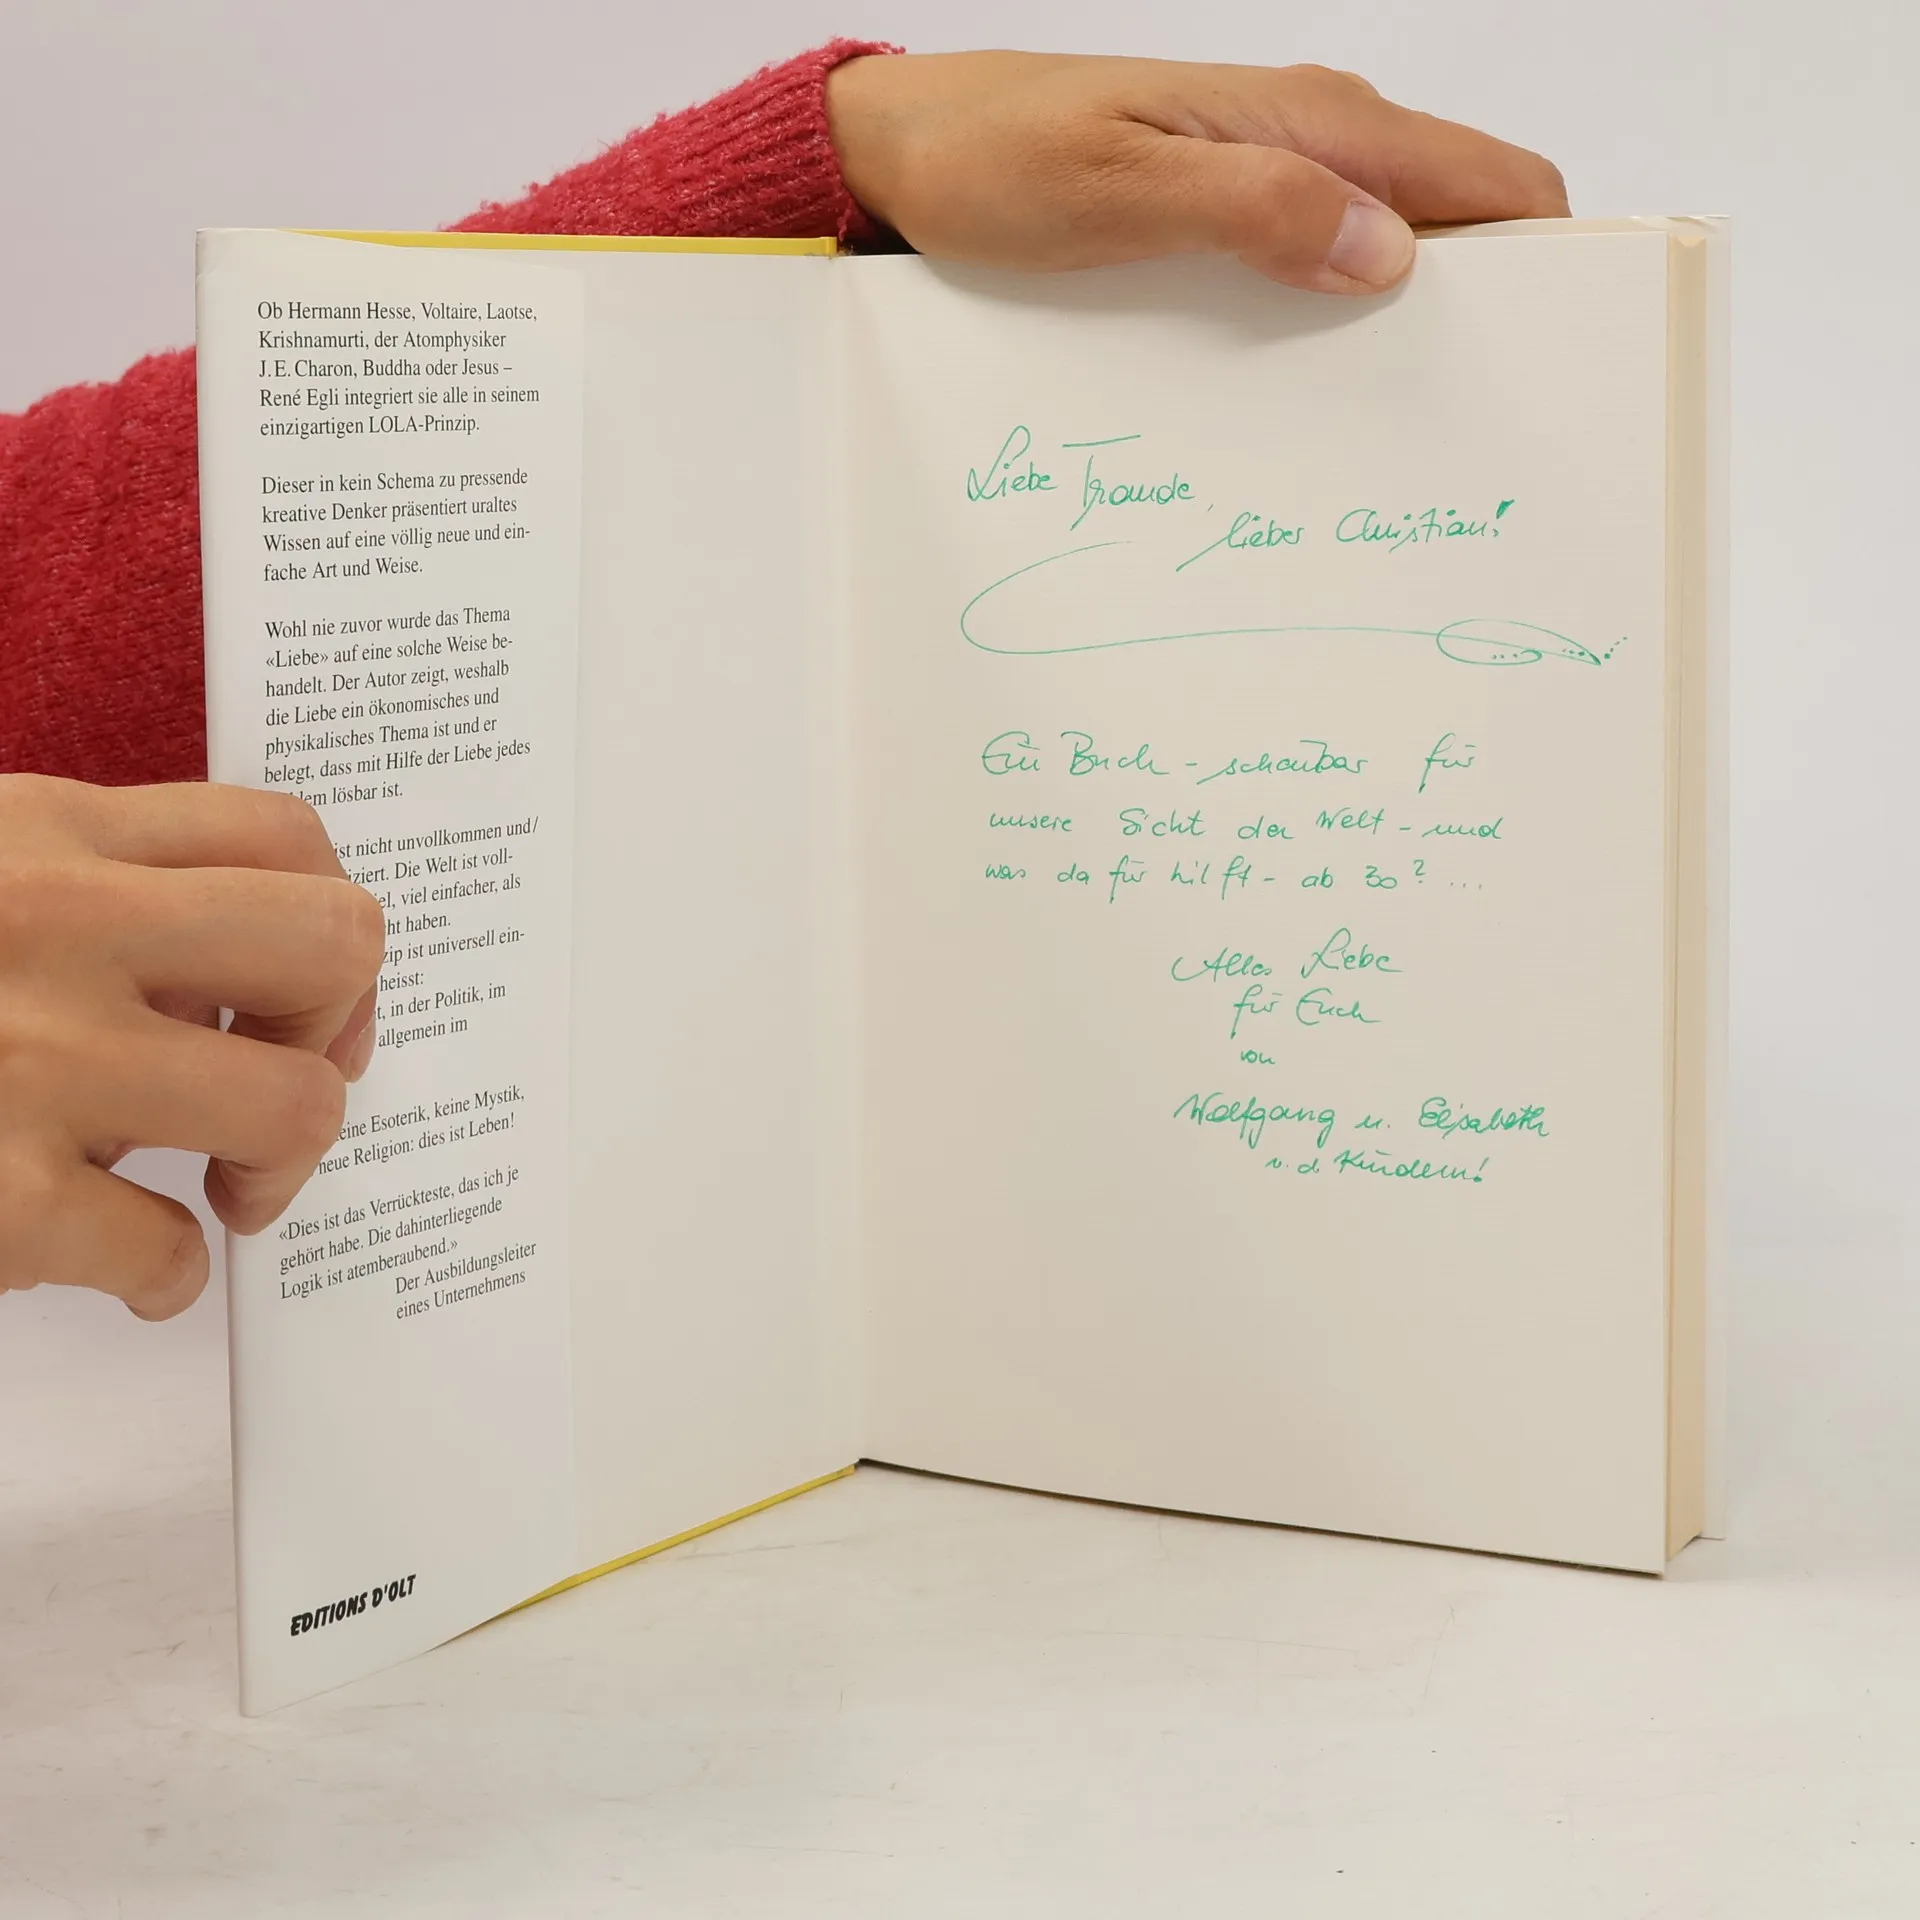 Ob Hermann Hesse, Voltaire, Laotse,
Krishnamurti, der Atomphysiker
J. E. Charon, Buddha oder Jesus –
René Egli integriert sie alle in seinem
einzigartigen LOLA-Prinzip.
Dieser in kein Schema zu pressende
kreative Denker präsentiert uraltes
Wissen auf eine völlig neue und ein-
fache Art und Weise.
Wohl nie zuvor wurde das Thema
«Liebe» auf eine solche Weise be-
handelt. Der Autor zeigt, weshalb
die Liebe ein ökonomisches und
physikalisches Thema ist und er
belegt, dass mit Hilfe der Liebe jedes
lem lösbar ist.
ist nicht unvollkommen und/
iziert. Die Welt ist voll-
el, viel einfacher, als
ht haben.
zip ist universell ein-
heisst:
t, in der Politik, im
allgemein im
eine Esoterik, keine Mystik,
neue Religion: dies ist Leben!
«Dies ist das Verrückteste, das ich je
gehört habe. Die dahinterliegende
Logik ist atemberaubend.»
Der Ausbildungsleiter
eines Unternehmens
EDITIONS D'OLT
Liebe Traude,
lieber Christian!
Ein Buch - schaubar für
unsere Sicht der Welt - und
was da für hilft - ab 30? ...
Alles Liebe
für Euch
von
Wolfgang u. Elisabeth
u. d. Kindern!